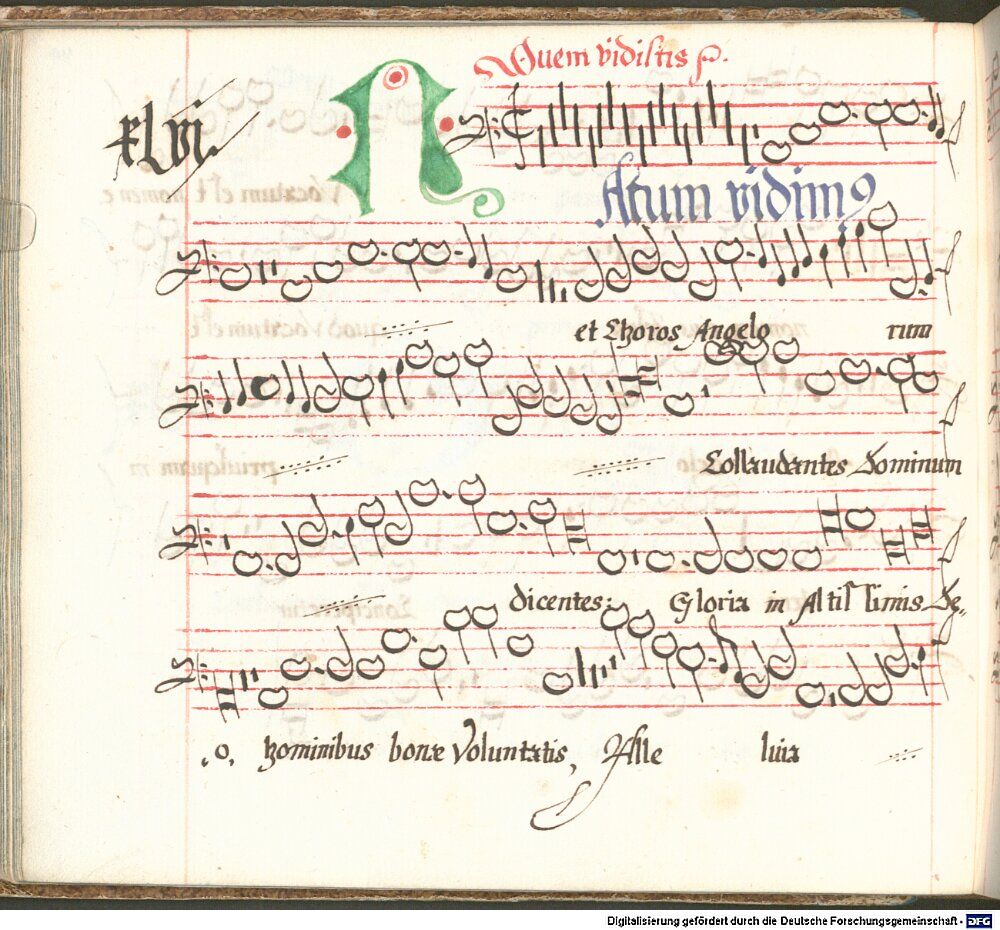 Quem vidistis p.
xLvj.
NAtum vidimꝰ
et Choros Angelo rum
Collaudantes Dominum
dicentes: Gloria in Altissimis De,
,o, hominibus bonæ Voluntatis, Alle luia
Digitalisierung gefördert durch die Deutsche Forschungsgemeinschaft - DFG